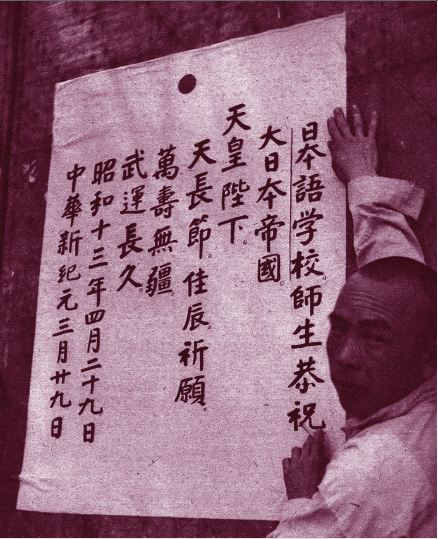 日本語学校師生恭祝
大日本帝國
天皇陛下。
天長節佳辰祈願。
萬壽無疆。
武運長久。
昭和十三年四月二十九日
中華新紀元三月廿九日